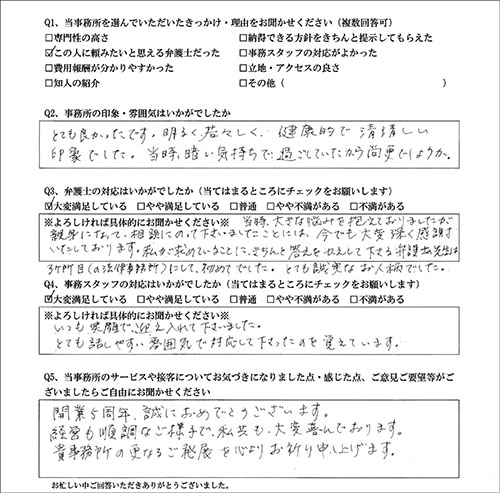 Q1、当事務所を選んでいただいたきっかけ・理由をお聞かせください（複数回答可）
□専門性の高さ □納得できる方針をきちんと提示してもらえた
☑この人に頼みたいと思える弁護士だった □事務スタッフの対応がよかった
□費用報酬が分かりやすかった □立地・アクセスの良さ
□知人の紹介 □その他（ ）
Q2、事務所の印象・雰囲気はいかがでしたか
とても良かったです。明るく、若々しく、健康的で清清しい
印象でした。当時、暗い気持ちで過ごしていたから尚更でしょうか。
Q3、弁護士の対応はいかがでしたか（当てはまるところにチェックをお願いします）
☑大変満足している □やや満足している □普通 □やや不満がある □不満がある
※よろしければ具体的にお聞かせください※ 当時、大きな悩みを抱えておりましたが
親身になって、相談にのって下さいましたことには、今でも大変深く感謝
いたしております。私が求めていることに、きちんと答えを伝えして下さる弁護士先生は
3ヶ所目(の法律事務所)にして、初めてでした。とても誠実なお人柄でした。
Q4、事務スタッフの対応はいかがでしたか（当てはまるところにチェックをお願いします）
☑大変満足している □やや満足している □普通 □やや不満がある □不満がある
※よろしければ具体的にお聞かせください※
いつも笑顔で、迎え入れて下さいました。
とても話しやすい雰囲気で対応して下さったのを覚えています。
Q5、当事務所のサービスや接客についてお気づきになりました点・感じた点、ご意見ご要望等がご
ざいましたらご自由にお聞かせください
開業5周年、誠におめでとうございます。
経営も順調なご様子で、私共も、大変喜んでおります。
貴事務所の更なるご発展を心よりお祈り申し上げます。
お忙しい中ご回答いただきありがとうございました。